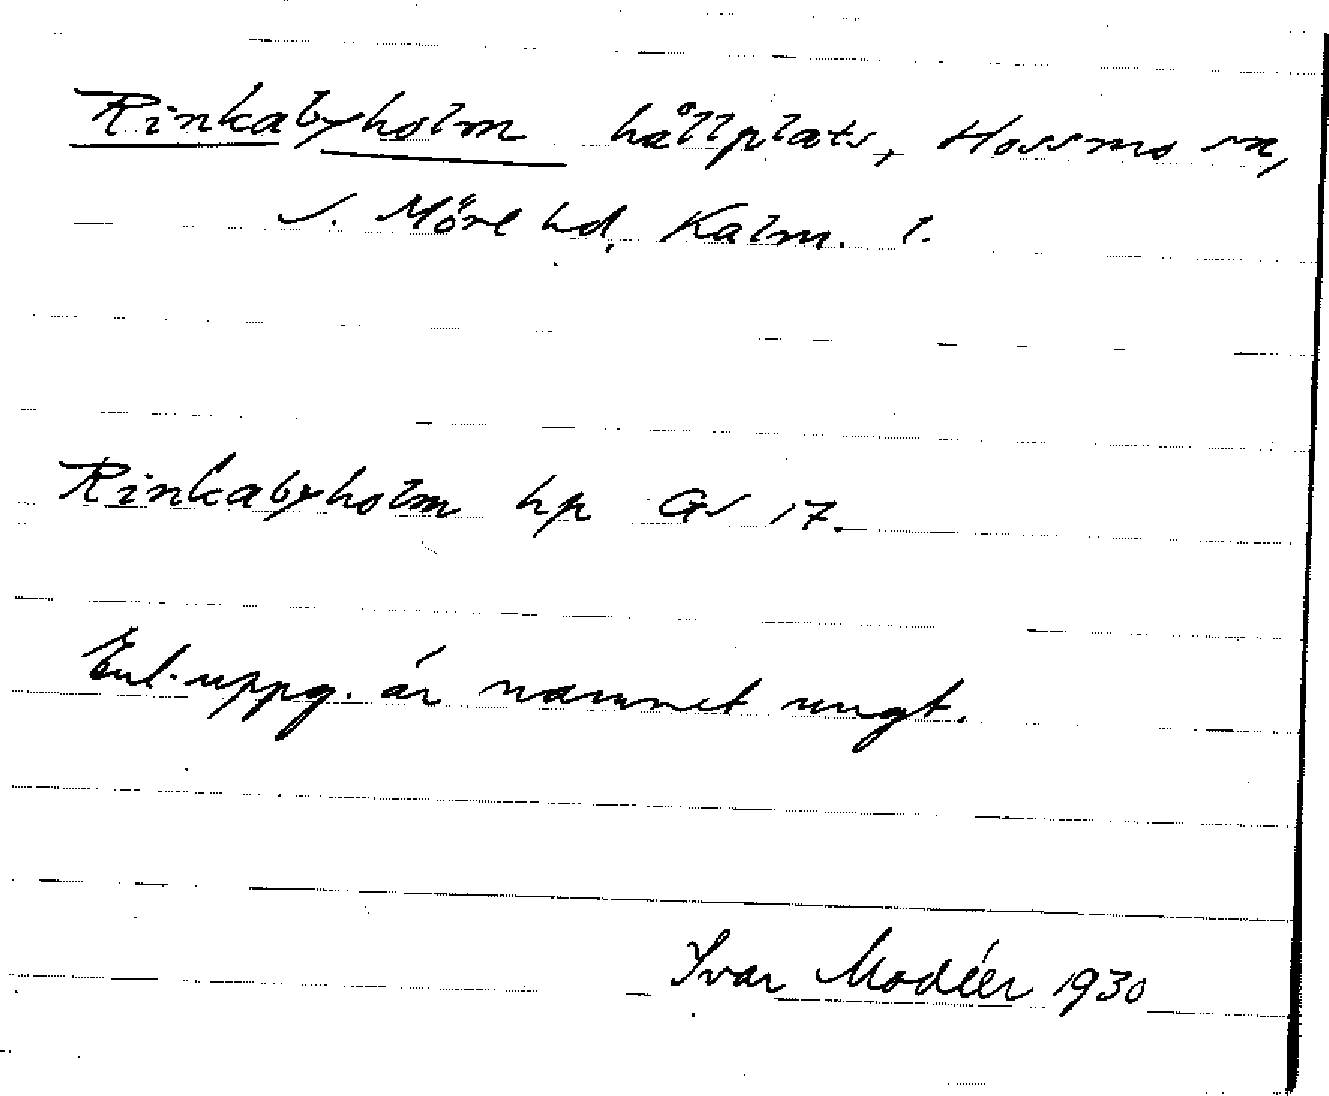 Rinkabyholm hållplats, Hossmo sn,
S. Möre hd, Kalm. l.
Rinkabyholm hp Gs 17.
Enl. uppg. är namnet ungt.
Ivar Modéer 1930